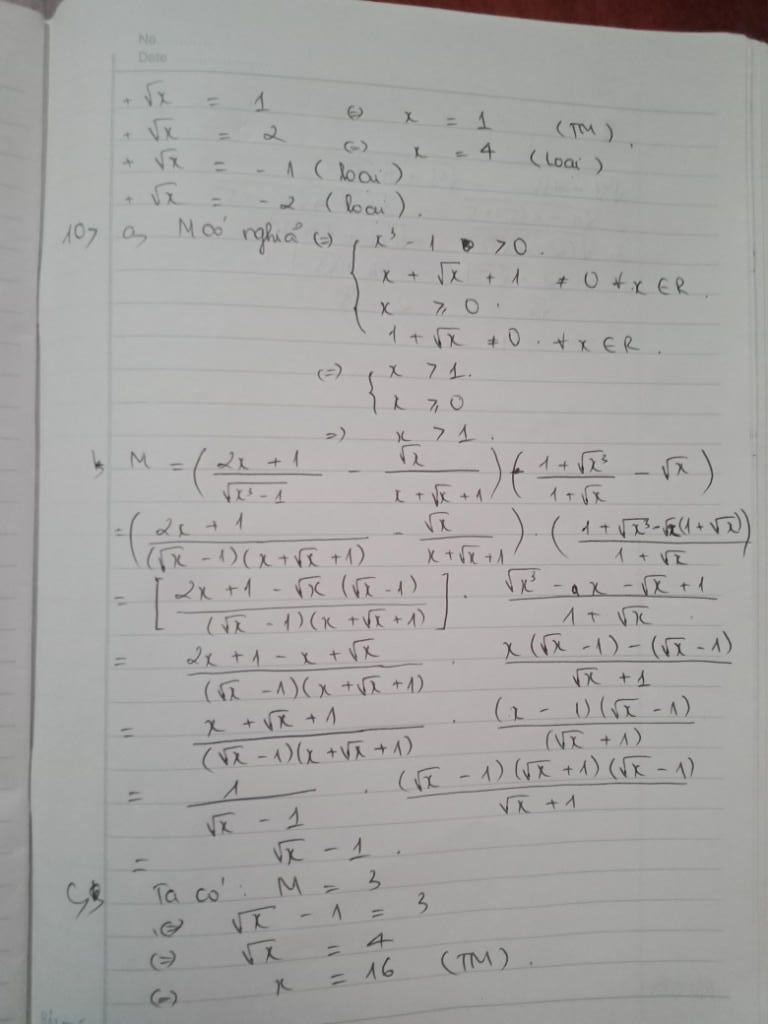 No.
Date
+ √x = 1 (=) x = 1 (TM).
+ √x = 2 (=) x = 4 (loại)
+ √x = - 1 (loại)
+ √x = - 2 (loại).
10> a, M có nghĩa (=) { x³ - 1 > 0.
x + √x + 1 ≠ 0 ∀ x ∈ R.
x ≥ 0.
1 + √x ≠ 0. ∀ x ∈ R.
(=) { x > 1.
x ≥ 0
=) x > 1.
b, M = ( (2x + 1)/√(x³ - 1) - √x/(x + √x + 1) ) ( (1 + √x³)/(1 + √x) - √x )
= ( (2x + 1)/((√x - 1)(x + √x + 1)) - √x/(x + √x + 1) ) . ( (1 + √x³ - √x(1 + √x))/(1 + √x) )
= [ (2x + 1 - √x (√x - 1))/((√x - 1)(x + √x + 1)) ] . (√x³ - x - √x + 1)/(1 + √x)
= (2x + 1 - x + √x)/((√x - 1)(x + √x + 1)) . (x(√x - 1) - (√x - 1))/(√x + 1)
= (x + √x + 1)/((√x - 1)(x + √x + 1)) . ((x - 1)(√x - 1))/(√x + 1)
= 1/(√x - 1) . ((√x - 1)(√x + 1)(√x - 1))/(√x + 1)
= √x - 1.
C, Ta có: M = 3
(=) √x - 1 = 3
(=) √x = 4
(=) x = 16 (TM).